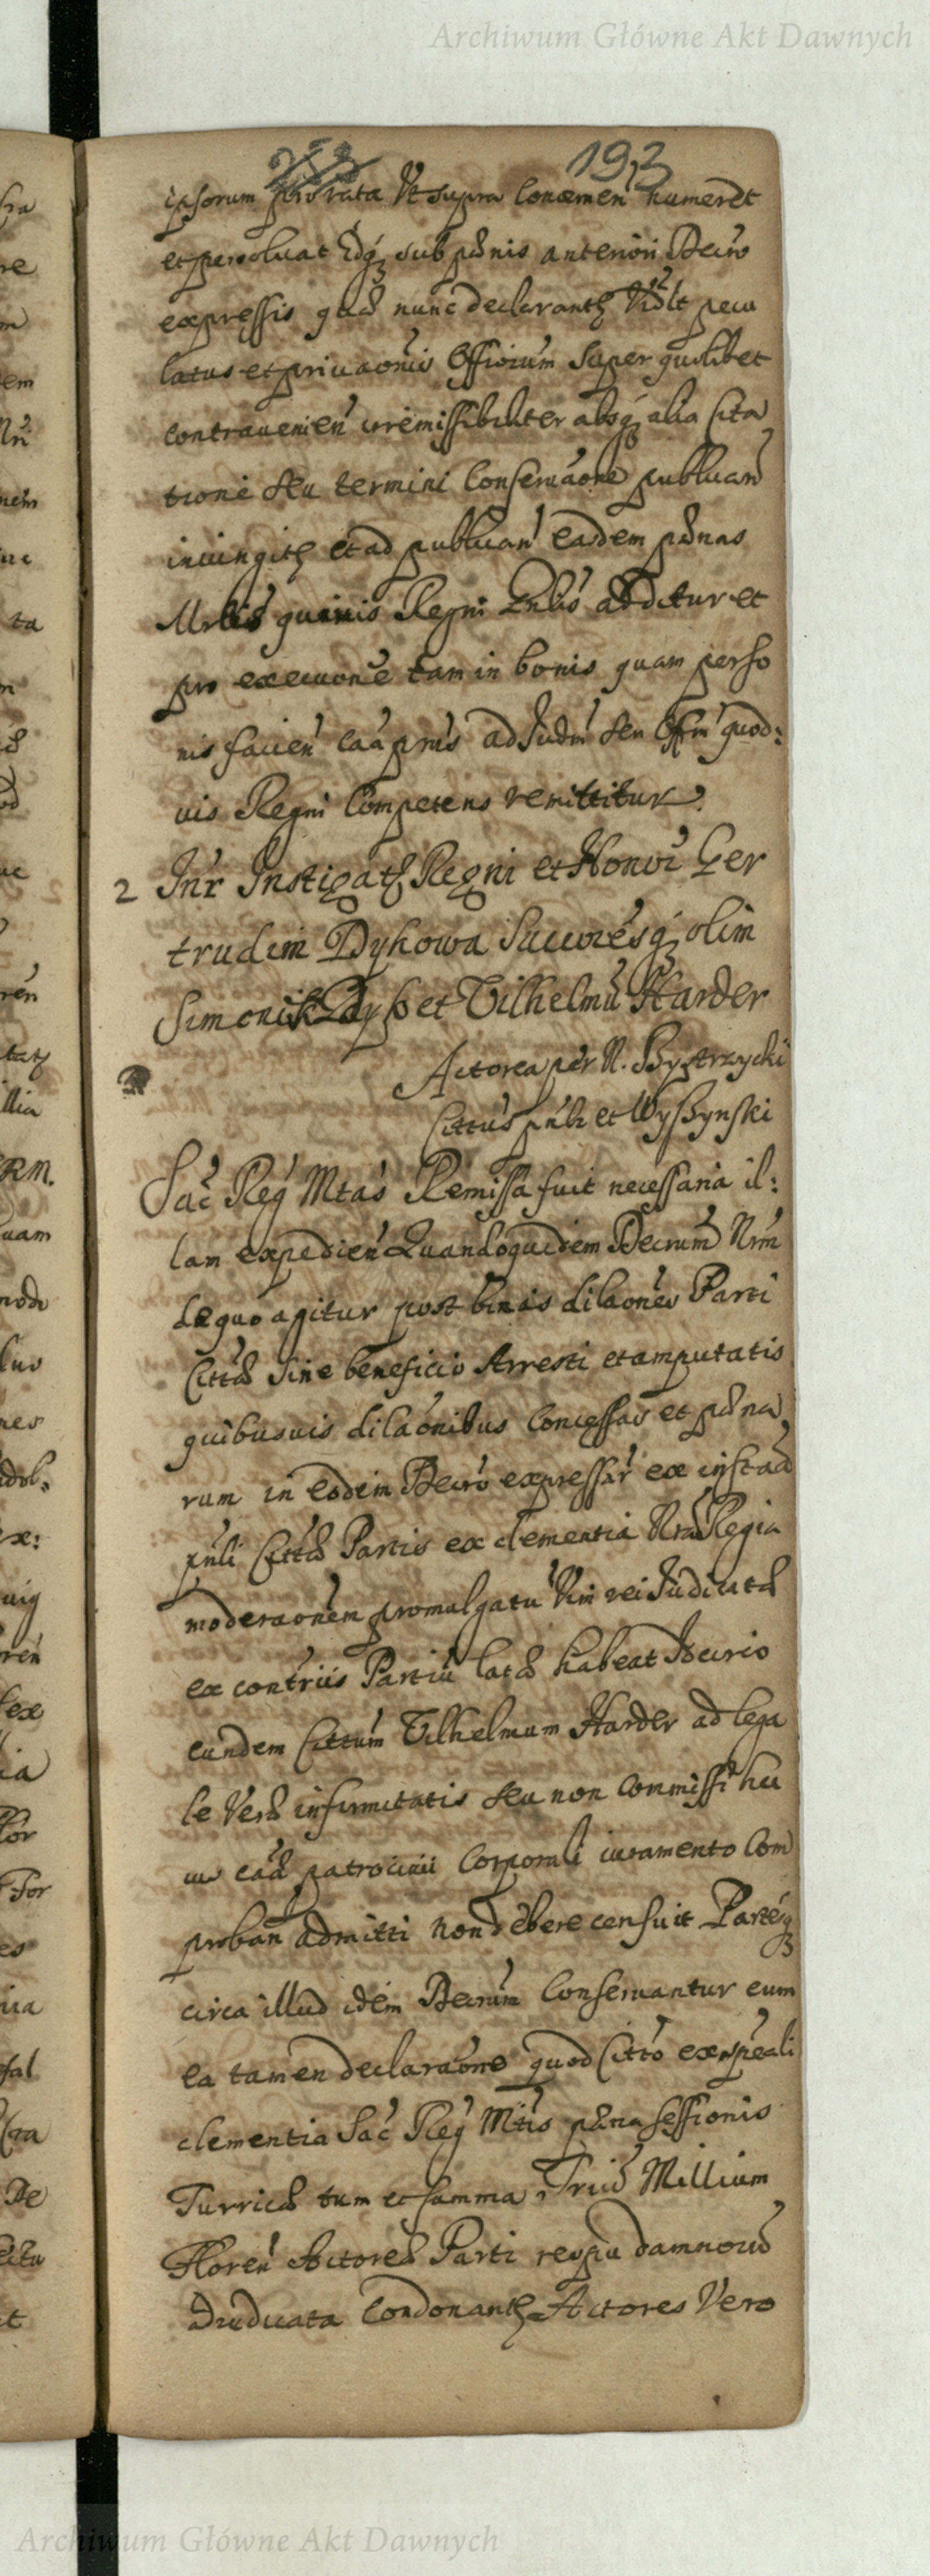 Archiwum Główne Akt Dawnych
193
ipsorum pro rata Vt supra concernen numeret
et persoluat Idq sub pænis anteriori Decro
expressis quæ nunc declarantq Vidlt pecu
latus et priuaonis Officium super quolibet
contrauenien irremissibiliter absq alia cita
tione seu termini conseruaone publican
iniungitq et ad publican easdem pænas
quiuis Regni additur et
pro execuone tam in bonis quam perso
nis facien caa pnis ad Judm seu Offm quod:
uis Regni Competens remittitur
2 Intr Instigatq Regni et Honor Ger
trudim Dykowa Succoresq olim
Simonis Dyk et Vilhelmu Harder
Actorea per N. Bystrzycki
Cittus pnlr et Wyszynski
Sac Reg Mtas Remissa fuit necessaria il:
lam expedien Quandoquidem Decrum Nrm
de quo agitur post binas dilaones Parti
Cittæ sine beneficio Arresti et amputatis
quibusuis dilaonibus concessas et pæna
rum in eodem Decro expressar ex instaa
pnli Cittæ Partis ex clementia Nra Regia
moderaonem promulgatu Vim rei Judicatæ
ex contrius Partiu latæ habeat Decrio
eundem Cittum Vilhelmum Harder ad lega
le Veræ infirmitatis seu non commissi hu
ius caæ patrocinii corporali iuramento com
proban admitti non debere censuit Partesq
circa illud idem Decrum conseruantur cum
ea tamen declaraone quod Citto ex speali
clementia Sac Reg Mtis pæna sessionis
Turricæ tum et summa Triu Millium
Floren Actoreæ Parti respu damnoru
adiudicata condonantq Actores Vero
Archiwum Główne Akt Dawnych